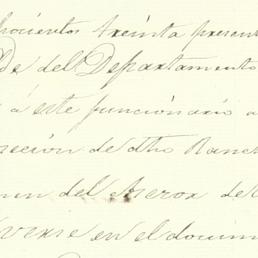 hocientos treinta presen
de del Departamento
á este funcionario a
seción de dho Ranc
del Señor de
verse en el docum